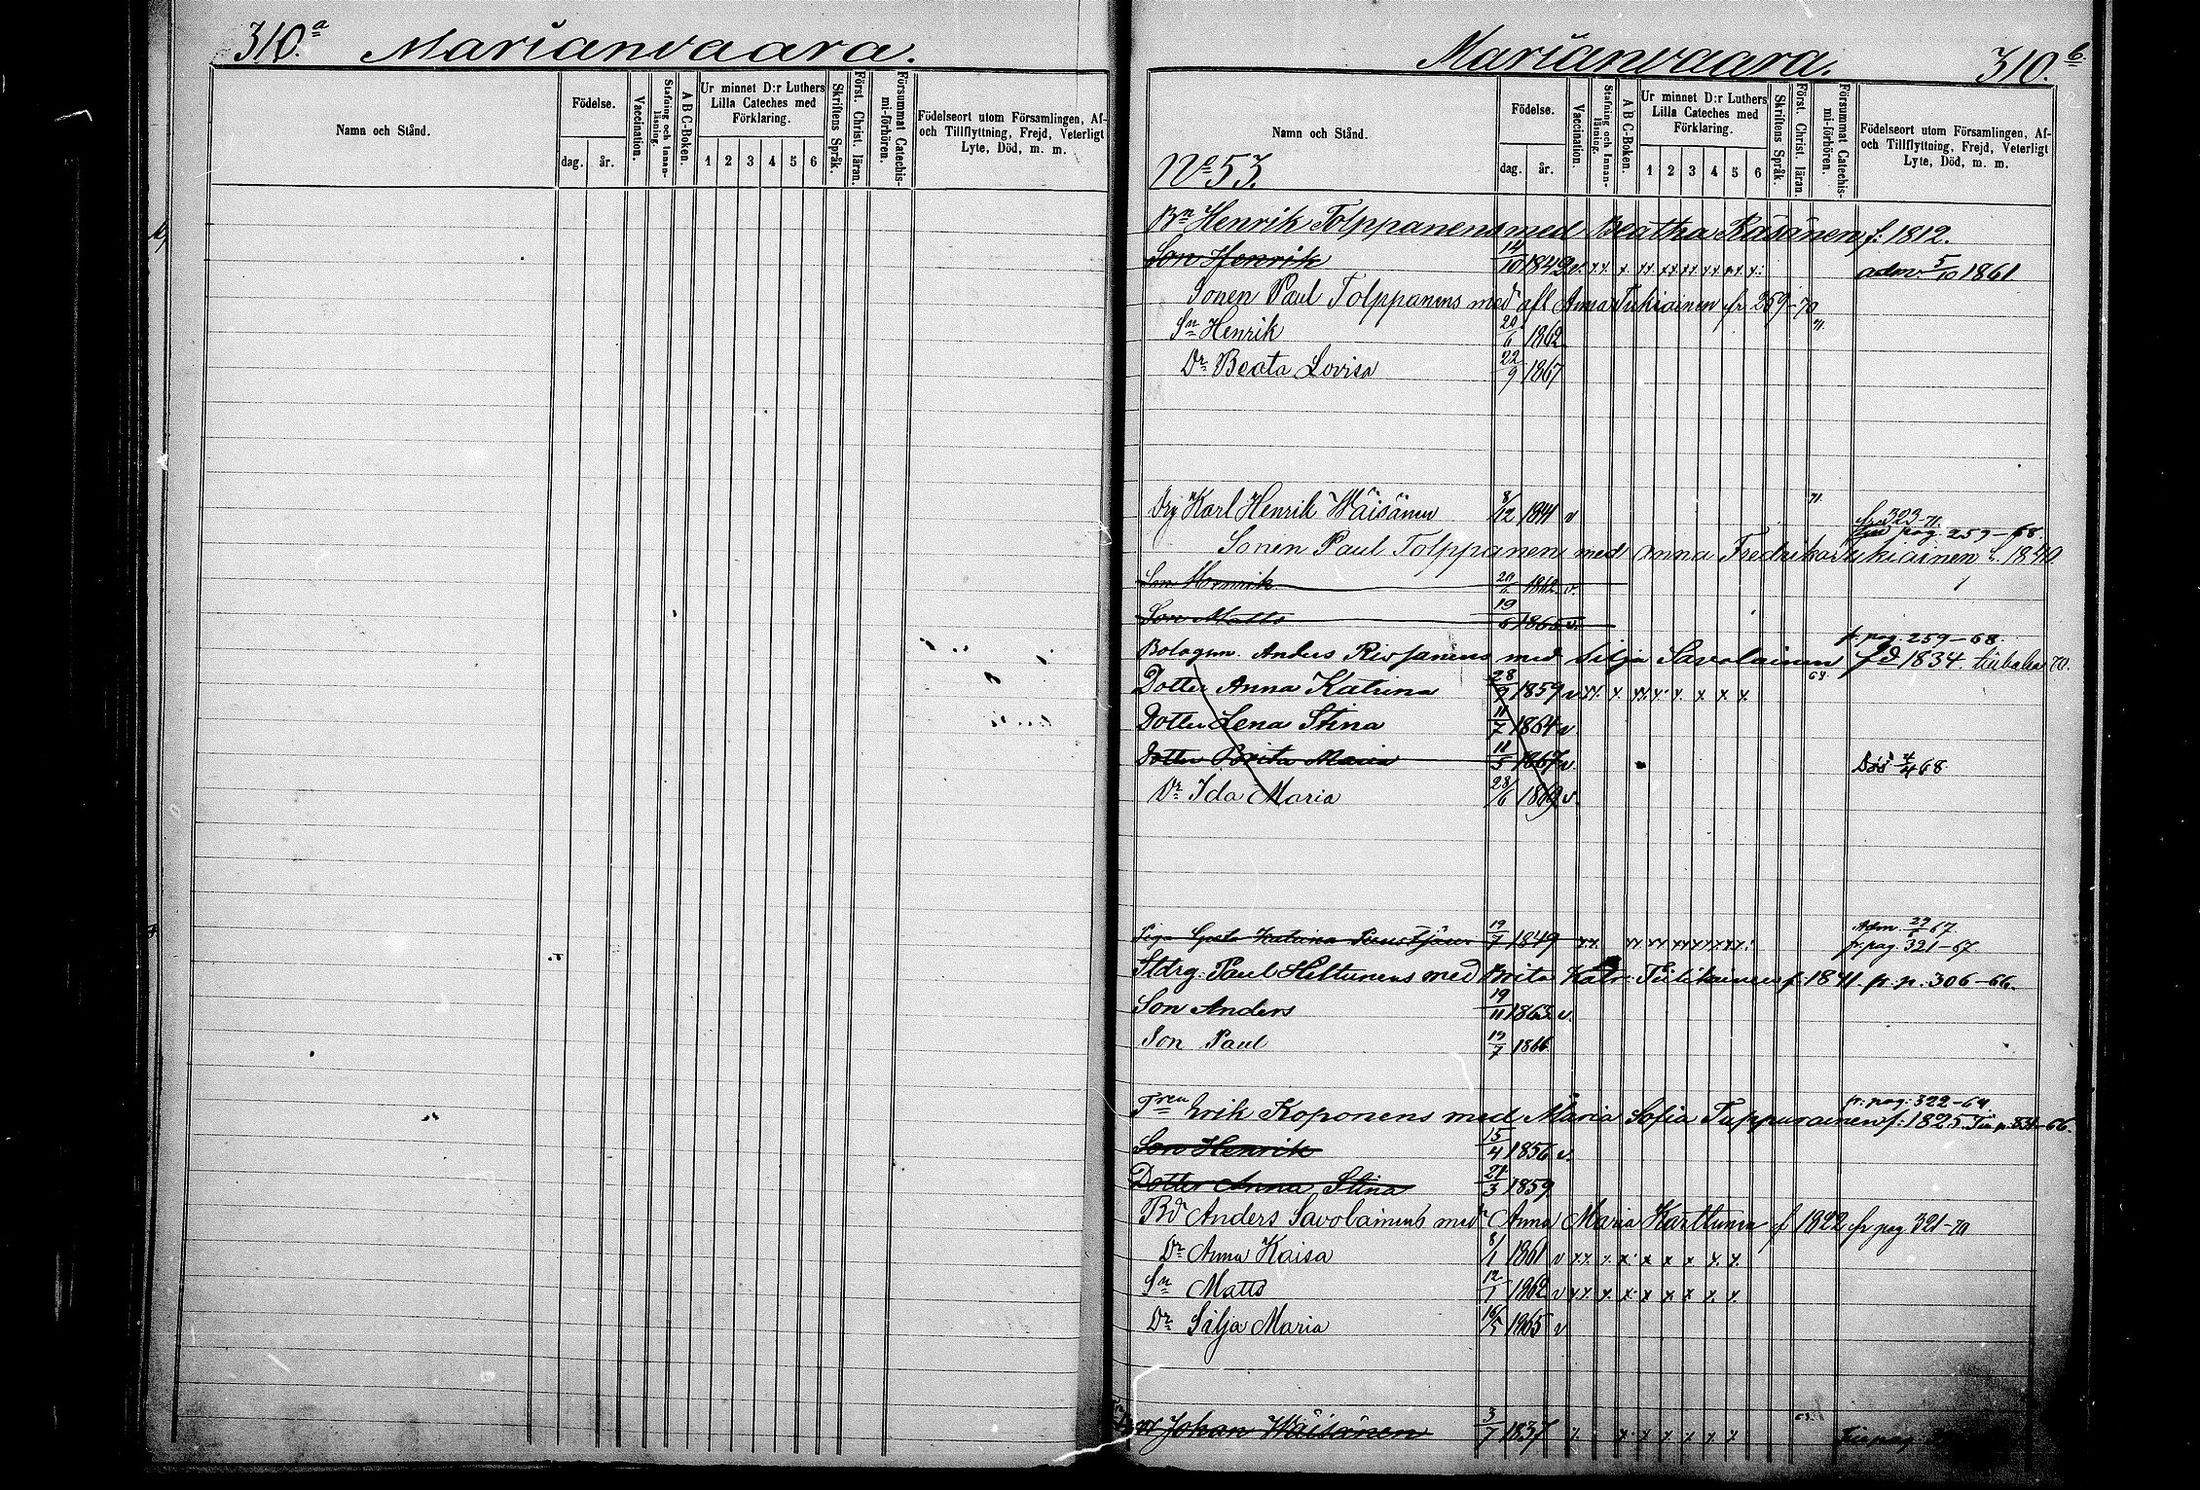 310.a Marianvaara.
Namn och Stånd.
Födelse.
dag. år.
Vaccination.
Stafning och Innanläsning.
A B C-Boken.
Ur minnet D:r Luthers Lilla Cateches med Förklaring.
1 2 3 4 5 6
Skriftens Språk.
Först. Christ. läran.
Försummat Catechismi-förhören.
Födelseort utom Församlingen, Af- och Tillflyttning, Frejd, Veterligt Lyte, Död, m. m.
Marianvaara. 310.b
Namn och Stånd.
No 53.
Födelse.
dag. år.
Vaccination.
Stafning och Innanläsning.
A B C-Boken.
Ur minnet D:r Luthers Lilla Cateches med Förklaring.
1 2 3 4 5 6
Skriftens Språk.
Först. Christ. läran.
Försummat Catechismi-förhören.
Födelseort utom Församlingen, Af- och Tillflyttning, Frejd, Veterligt Lyte, Död, m. m.
Bn Henrik Tolppanens med Beatha Räsänen f: 1812.
Son Henrik 14/10 1842 v. adm. 5/10 1861
Sonen Paul Tolppanens med afl Anna Tukiainen fr 259-70
Sn Henrik 20/6 1862
Dr Beata Lovisa 22/9 1867
Drg Karl Henrik Wäisänen 8/12 1841 v 71. fr 323-71.
pag. 259-68.
Sonen Paul Tolppanen med Anna Fredrika Tukiainen f. 1840
Son Henrik 20/6 1862 v.
Son Matts 19/6 1865 v.
fr. pag. 259-68.
Bolagsm. Anders Rissanens med Silja Savolainen fd 1834.
Dotter Anna Katrina 28/9 1859 v
Dotter Lena Stina 11/7 1864 v
Dotter Brita Maria 11/5 1867 v. Död 4/4 68
Dr Ida Maria 28/6 1869 v.
Adm. 29/6 67.
Piga Greta Katrina 19/7 1849 fr. pag. 321-67.
Stdrg. Paul Hiltunens med Brita Katr. Tiilikainen f. 1841. fr. p. 306-66.
Son Anders 19/11 1863 v.
Son Paul 17/7 1866
fr. pag. 322-64
Erik Koponens med Maria Sofia Tuppurainen f: 1825
Son Henrik 15/4 1856 v.
Dotter Anna Stina 21/3 1859
Bd Anders Savolainens med Anna Maria Karttunen f 1822 fr pag 321-70
Dr Anna Kaisa 8/1 1861 v
Sn Matts 12/1 1862 v
Dr Silja Maria 16/5 1865 v
Johan Wäisänen 3/7 1837